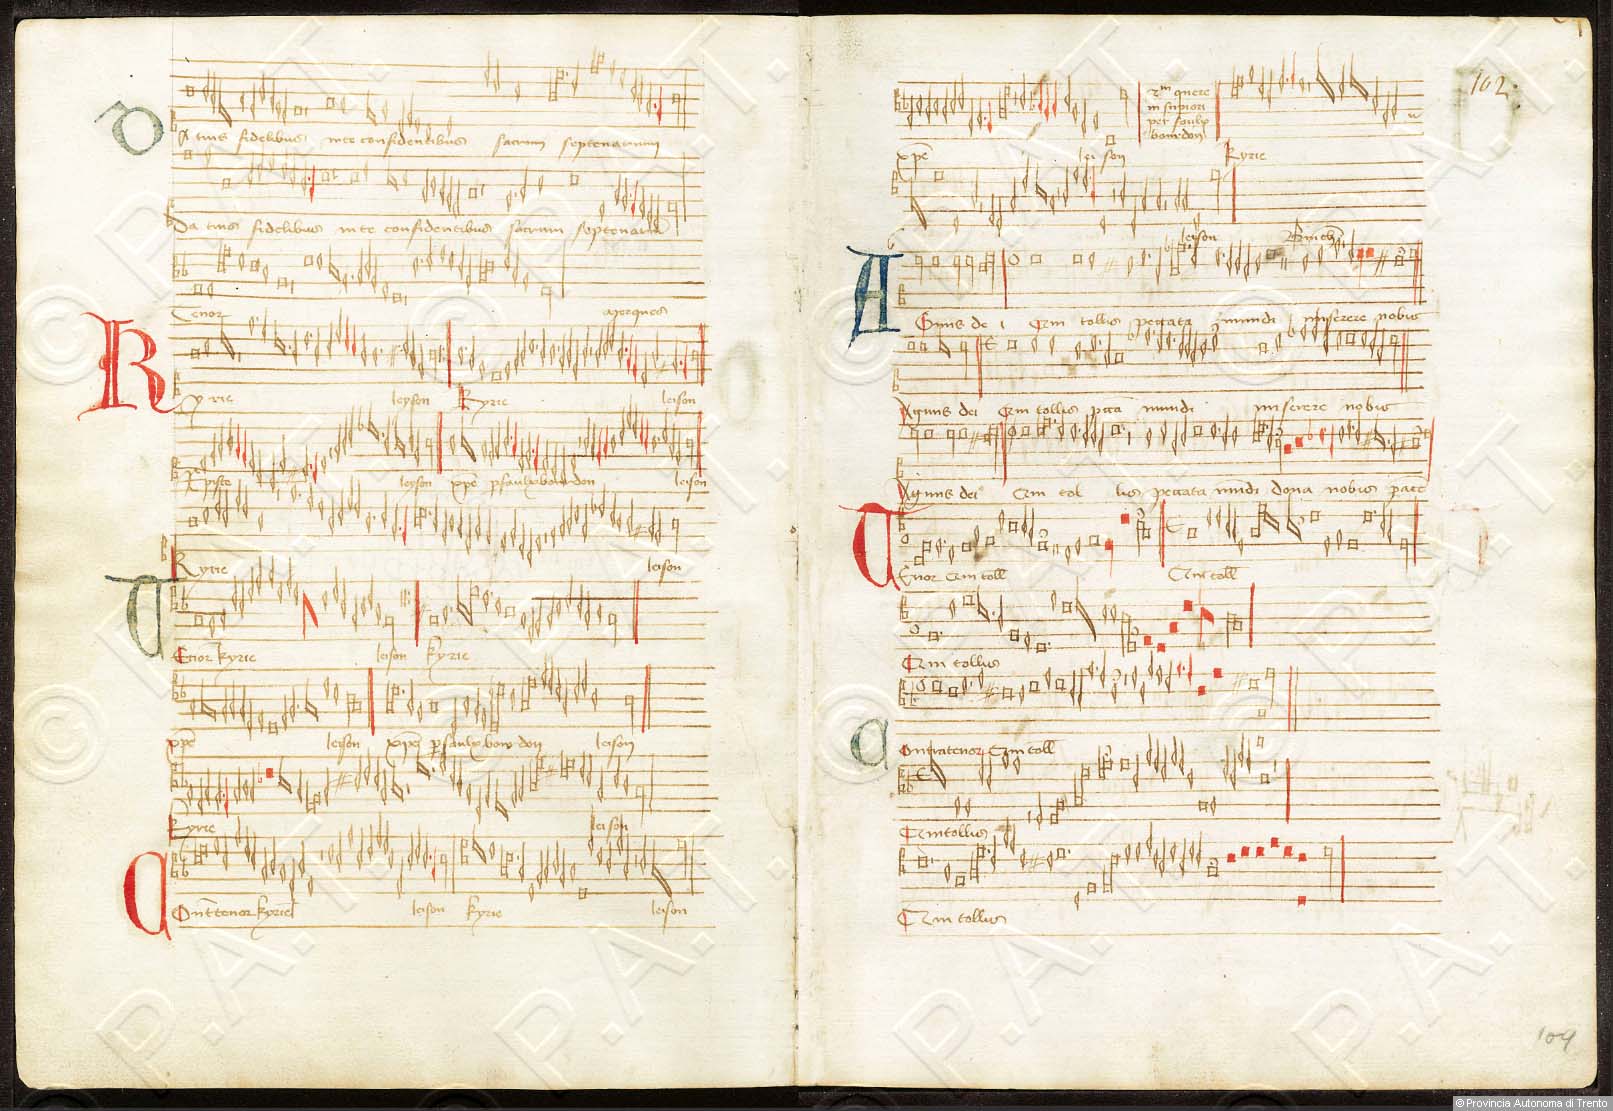 Da tuis fidelibus in te confidentibus sacrum septenarium
Da tuis fidelibus in te confidentibus sacrum septenariu
Tenor
Kyrie leyson Kyrie leison
Xpiste leyson xpe p faulx bourdon leison
Kyrie leison
Tenor kyrie leison kyrie
xpe leison xpe p faulx bourdon leison
Kyrie leison
Contratenor kyrie leison kyrie leison
102
rm quere
in supiori
per faulx
bourdon
xpe leison Kyrie
leison Binch
Agnus de i Qui tollis peccata mundi miserere nobis
Agnus dei Qui tollis pcca mundi miserere nobis
Agnus dei Qui tol lis peccata mundi dona nobis pace
Tenor Qui toll Qui toll
Qui tollis
Contratenor Qui toll
Qui tollis
Qui tollis
109
© Provincia Autonoma di Trento
© P.A.T.